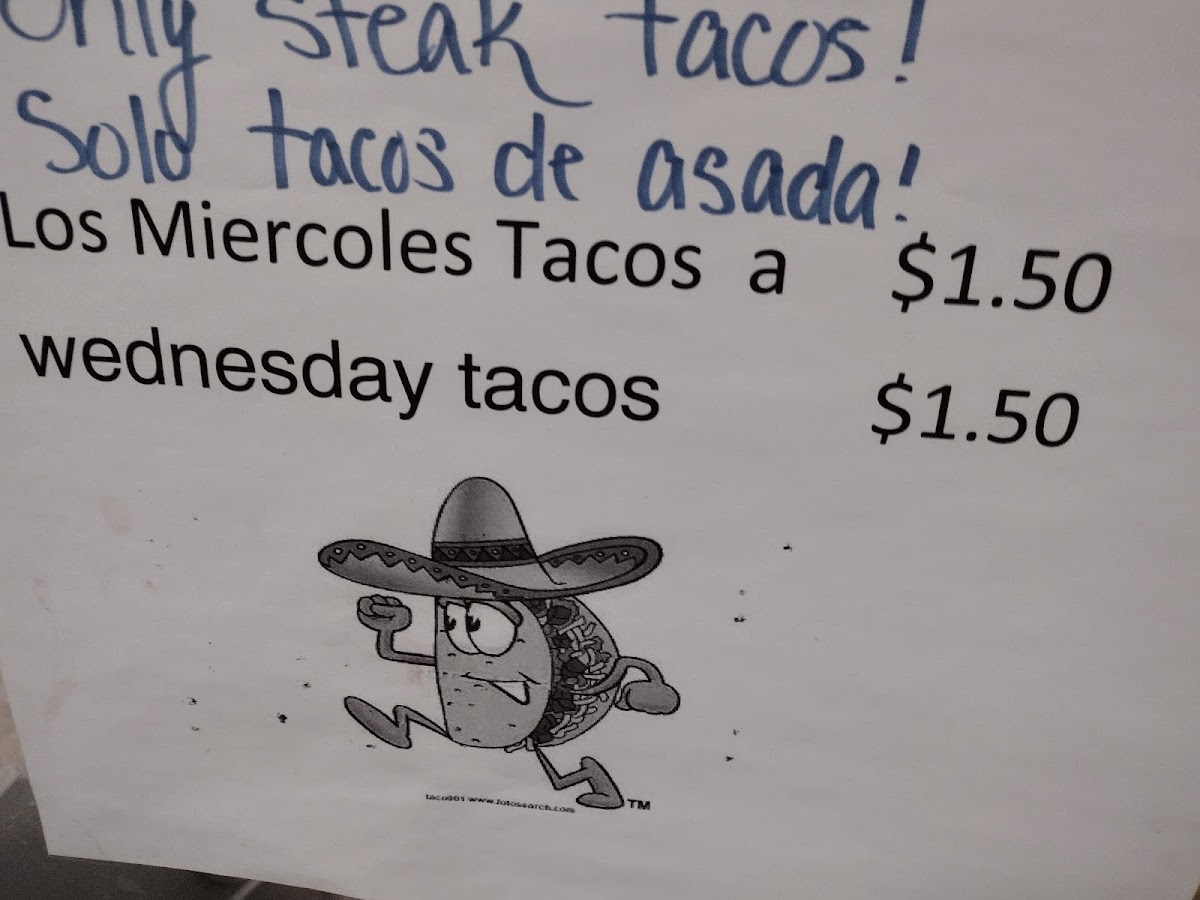 Only Steak tacos!
Solo tacos de asada!
Los Miercoles Tacos a $1.50
wednesday tacos $1.50
taco001 www.fotosearch.com
TM